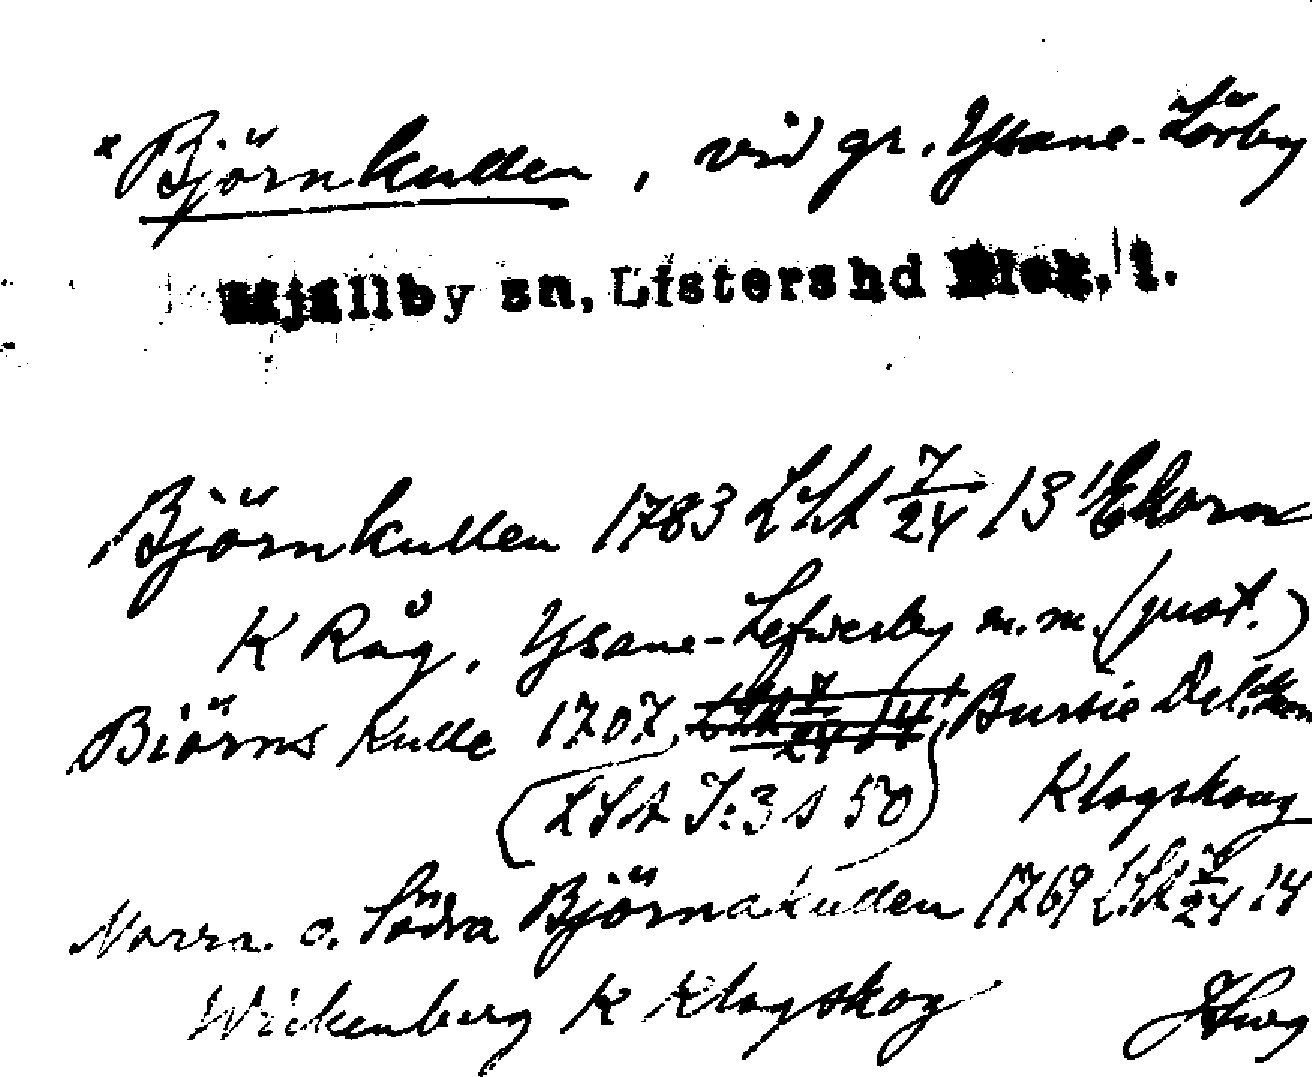 *Björnkullen, vid gr. Ysane-Lörby
Mjällby sn, Listers hd Blek. l.
Björnkullen 1783 LSA 7/24 13 Ekorn
K Råg, Ysane-Lefwerby m.m. (prot.)
Biörns Kulle 1707 Bursie Del.
(LSA I:3 s 50) Klagskoug
Norra o. Södra Björnakullen 1769 LSA 7/24 14
Wickenberg K Klagskog